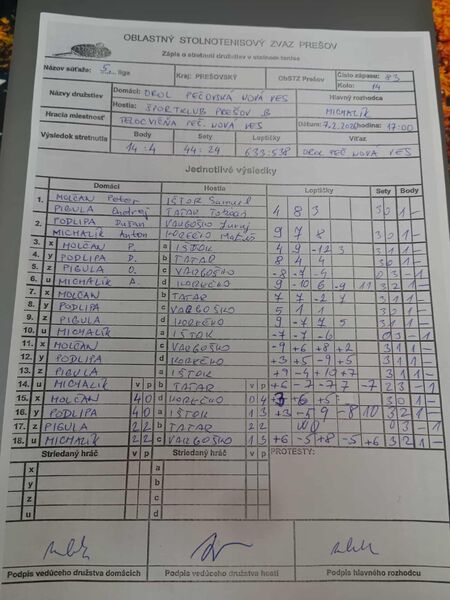 OBLASTNÝ STOLNOTENISOVÝ ZVÄZ PREŠOV
Zápis o stretnutí družstiev v stolnom tenise
Názov súťaže: 5. liga Kraj: PREŠOVSKÝ ObSTZ Prešov Číslo zápasu: 83
Kolo: 14
Názvy družstiev Domáci: OROL PEČOVSKÁ NOVÁ VES Hlavný rozhodca
Hostia: ŠPORTKLUB PREŠOV B MICHALÍK
Hracia miestnosť TELOCVIČŇA PEČ. NOVÁ VES Dátum: 7.2.2026 hodina: 17:00
Výsledok stretnutia Body Sety Loptičky Víťaz
14:4 44:24 633:538 OROL PEČ NOVÁ VES
Jednotlivé výsledky
Domáci Hostia Loptičky Sety Body
1. MOLČAN Peter IŠTOK Samuel
PIGULA Andrej TATAR 4 8 3 3 0 1 -
2. PODLIPA Dušan VARGOŠKO Juraj
MICHALÍK Anton KOREČKO 9 7 8 3 0 1 -
3. x MOLČAN P. a IŠTOK 4 9 -12 3 3 1 1 -
4. y PODLIPA D. b TATAR 8 4 4 3 0 1 -
5. z PIGULA c VARGOŠKO -8 -7 -4 0 3 - 1
6. u MICHALÍK A. d KOREČKO 9 -10 6 -9 11 3 2 1 -
7. x MOLČAN b TATAR 7 7 -2 7 3 1 1 -
8. y PODLIPA c VARGOŠKO 5 1 1 3 0 1 -
9. z PIGULA d KOREČKO 9 -7 7 5 3 1 1 -
10. u MICHALÍK a IŠTOK -7 -7 -6 0 3 - 1
11. x MOLČAN c VARGOŠKO -9 +6 +8 +2 3 1 1 -
12. y PODLIPA d KOREČKO +3 +5 -9 +5 3 1 1 -
13. z PIGULA a IŠTOK +9 -4 +10 +7 3 1 1 -
14. u MICHALÍK v p b TATAR v p +6 -7 -7 7 -7 2 3 - 1
15. x MOLČAN 4 0 d KOREČKO 0 4 +6 +5 3 0 1 -
16. y PODLIPA 4 0 a IŠTOK 1 3 +3 -5 9 -8 10 3 2 1 -
17. z PIGULA 2 2 b TATAR 2 2 WO 0 3 - 1
18. u MICHALÍK 2 2 c VARGOŠKO 1 3 +6 -5 +8 -5 +6 3 2 1 -
Striedaný hráč v p Striedaný hráč v p PROTESTY:
x a
y b
z c
u d
Podpis vedúceho družstva domácich Podpis vedúceho družstva hostí Podpis hlavného rozhodcu